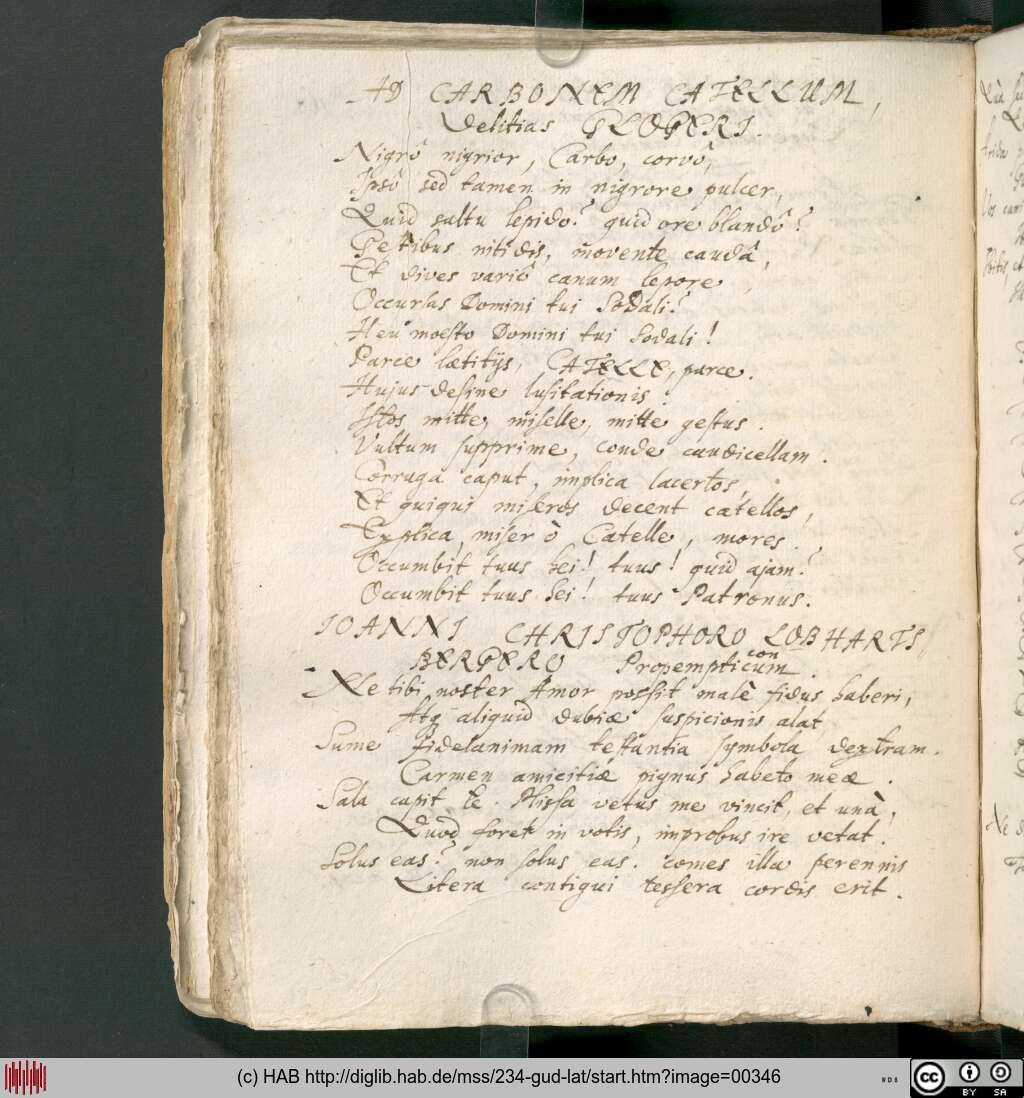 AD CARBONEM CATELLUM,
Delitias GLOGERI.
Nigrô nigrior, Carbo, corvô,
Ipsô sed tamen in nigrore pulcer,
Quid saltu lepido? quid ore blandô?
Gestibus nitidis, movente caudâ,
Et dives variô canum lepore
Occursas Domini tui Sodali?
Heu moesto Domini tui sodali!
Parce lætitijs, CATELLE, parce.
Hujus desine lusitationis.
Istos mitte, miselle, mitte gestus.
Vultum supprime, conde caudicellam.
Corruga caput, implica lacertos,
Et quiqui miseros decent catellos,
Explica, miser ô Catelle, mores.
Occumbit tuus hei! tuus! quid ajam?
Occumbit tuus hei! tuus Patronus.
IOANNI CHRISTOPHORO LOBHARTS,
BERGERO Propempticum.
con
Ne tibi noster Amor possit malè fidus haberi,
Atq aliquid dubiæ suspicionis alat,
Sume fidelanimam testantia symbola dextram.
Carmen amicitiæ pignus habeto meæ.
Sala capit te. Nissa vetus me vincit, et unà,
Quod foret in votis, improbus ire vetat.
Solus eas? non solus eas. comes illa perennis
Litera contigui tessera cordis erit.
(c) HAB http://diglib.hab.de/mss/234-gud-lat/start.htm?image=00346
cc BY SA